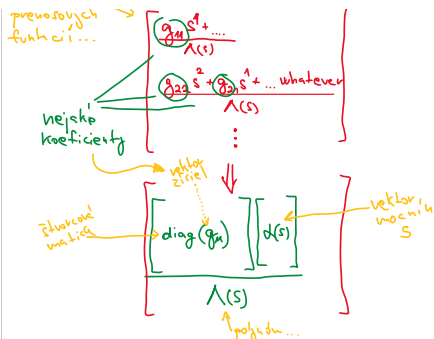 prenosových
funkcií...
g₁₁ s¹ + ....
Λ(s)
g₂₂ s² + g₂₁ s¹ + ... whatever
Λ(s)
nejaké
koeficienty
vektor
štvorcová
matica
diag(g₁₁)
α(s)
vektor
mocnín
s
Λ(s)